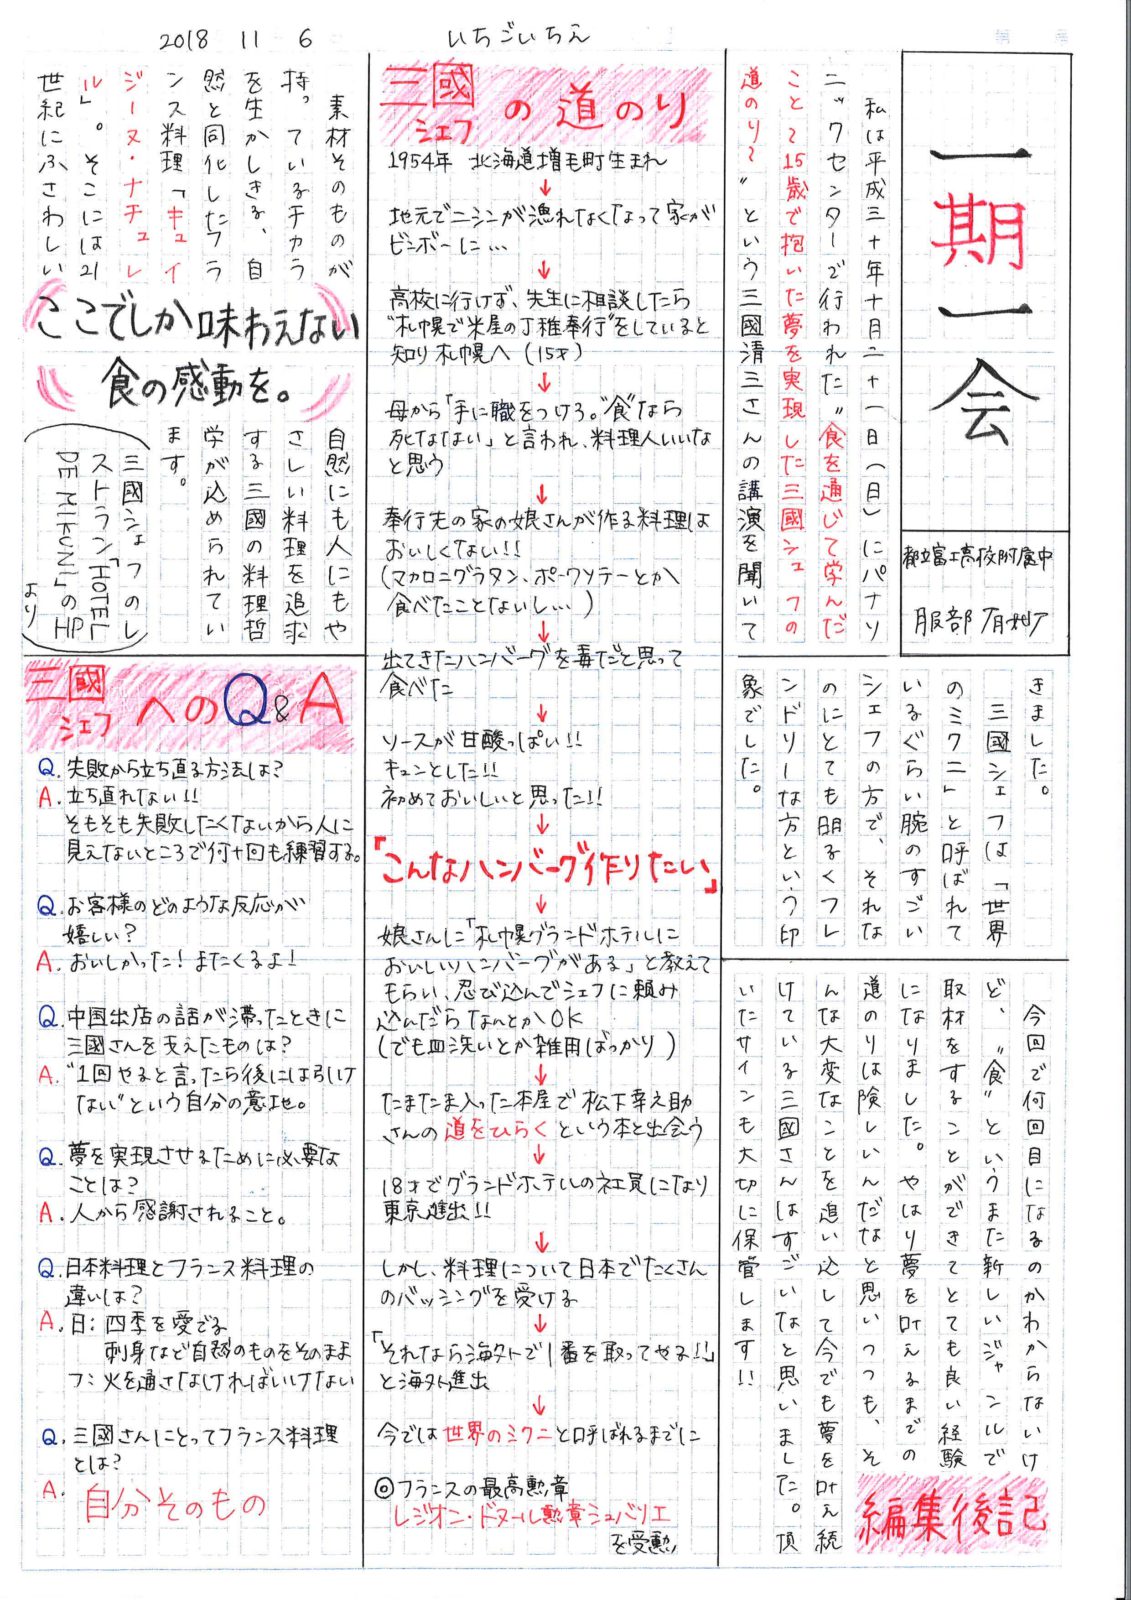 2018 11 6
いちごいちえ
一期一会
都立富士高校附属中
服部
私は平成三十年十月二十一日(日)にパナソ
ニックセンターで行われた〝食を通じて学んだ
こと〜15歳で抱いた夢を実現した三國シェフの
道のり〜〟という三國清三さんの講演を聞いて
きました。
三國シェフは「世界
のミクニ」と呼ばれて
いるぐらい腕のすごい
シェフの方で、それな
のにとても明るくフレ
ンドリーな方という印
象でした。
三國シェフの道のり
1954年 北海道増毛町生まれ
↓
地元でニシンが漁れなくなって家が
ビンボーに…
↓
高校に行けず、先生に相談したら
"札幌で米屋の丁稚奉行"をしていると
知り札幌へ(15才)
↓
母から「手に職をつけろ。"食"なら
死なない」と言われ、料理人いいな
と思う
↓
奉行先の家の娘さんが作る料理は
おいしくない!!
(マカロニグラタン、ポークソテーとか
食べたことないし…)
↓
出てきたハンバーグを毒だと思って
食べた
↓
ソースが甘酸っぱい!!
キュンとした!!
初めておいしいと思った!!
↓
「こんなハンバーグ作りたい」
↓
娘さんに「札幌グランドホテルに
おいしいハンバーグがある」と教えて
もらい、忍び込んでシェフに頼み
込んだらなんとかOK
(でも皿洗いとか雑用ばっかり)
↓
たまたま入った本屋で松下幸之助
さんの道をひらくという本と出会う
↓
18才でグランドホテルの社員になり
東京進出!!
↓
しかし、料理について日本でたくさん
のバッシングを受ける
↓
「それなら海外で1番を取ってやる!!」
と海外進出
↓
今では世界のミクニと呼ばれるまでに
◎フランスの最高勲章
レジオン・ドヌール勲章シュバリエ
を受勲
素材そのものが
持っているチカラ
を生かしきる、自
然と同化したフラ
ンス料理「キュイ
ジーヌ・ナチュレ
ル」。そこには21
世紀にふさわしい
ここでしか味わえない
食の感動を。
自然にも人にもや
さしい料理を追求
する三國の料理哲
学が込められてい
ます。
三國シェフのレ
ストラン「HOTEL
DE MIKUNI」のHP
より
三國シェフへのQ&A
Q. 失敗から立ち直る方法は?
A. 立ち直れない!!
そもそも失敗したくないから人に
見えないところで何十回も練習する。
Q. お客様のどのような反応が
嬉しい?
A. おいしかった!またくるよ!
Q. 中国出店の話が滞ったときに
三國さんを支えたものは?
A. "1回やると言ったら後には引け
ない"という自分の意地。
Q. 夢を実現させるために必要な
ことは?
A. 人から感謝されること。
Q. 日本料理とフランス料理の
違いは?
A. 日:四季を愛でる
刺身など自然のものをそのまま
フ:火を通さなければいけない
Q. 三國さんにとってフランス料理
とは?
A. 自分そのもの
編集後記
今回で何回目になるのかわからないけ
ど、〝食〟というまた新しいジャンルで
取材をすることができてとても良い経験
になりました。やはり夢を叶えるまでの
道のりは険しいんだなと思いつつも、そ
んな大変なことを追い込して今でも夢を叶え続
けている三國さんはすごいなと思いました。頂
いたサインも大切に保管します!!